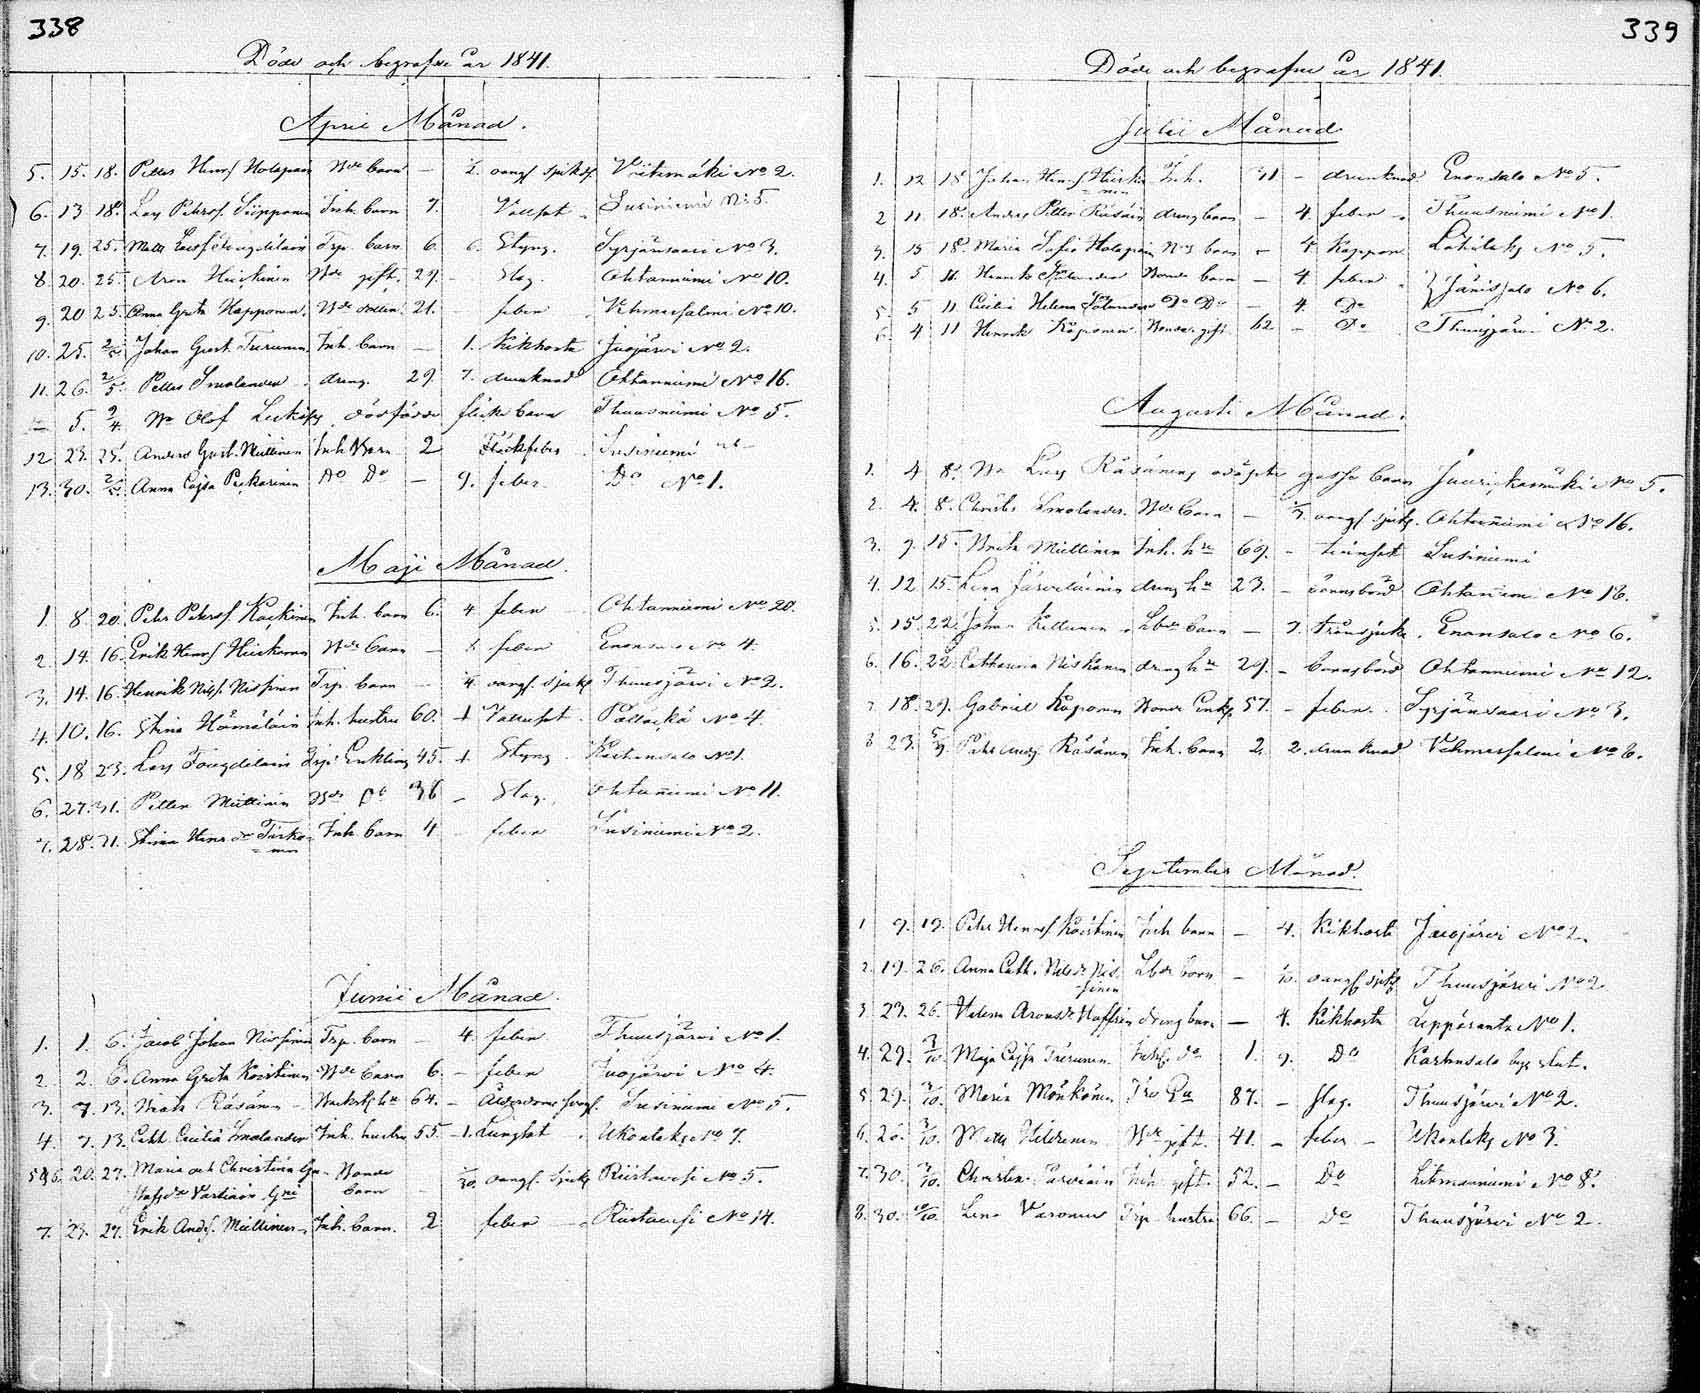 338
Döde och begrafne år 1841.
April Månad.
5. 15. 18. Petter Henrs Holopain Bde barn — oangf sjukd. Viitamäki No 2.
6. 13 18. Lars Petters. Siipponen Inh. barn 7. Vattsot Susiniemi No 5.
7. 19. 25. Matts Trp. barn 6. 6. Styng. Syrjänsaari No 3.
8. 20. 25. Aron Huiskinen Bde gift. 29. — Slag. Ohtaniemi No 10.
9. 20 25. Anna Greta Happonen. Bde dotter. 21. — feber Vehmersalmi No 10.
10. 25. 2/5. Johan Gust. Turunen Inh. barn — 1. Kikhosta Juojärvi No 2.
11. 26. 2/5. Petter Smolander dreng. 29. 7. drunknad Ohtaniemi No 16.
— 5. 9/4. Olof dödfödde flicke barn Thuusniemi No 5.
12 23. 25. Anders Gust. Miettinen Inh. barn 2 Fläckfeber Susiniemi
13. 30. 2/5. Anna Cajsa Pekarinen Do Do — 9. feber Do No 1.
Maji Månad.
1. 8. 20. Petr Petters Koskinen Inh. barn 6. 4. feber Ohtaniemi No 20.
2. 14. 16. Erik Henrs Bde barn — feber Enonsalo No 4.
3. 14. 16. Henrik Nils. Nissinen Trp. barn — oangf. sjukd Thuusjärvi No 2.
4. 10. 16. Stina Hämäläin Inh. hustru 60. + Vattusot. No 4.
5. 18 23. Lars Enkling 45. + Styng No 1.
6. 27. 31. Petter Miettinen Bde Do 36 — Slag. Ohtaniemi No 11.
7. 28. 31. Stina Henrsdr Tirkonen Inh. barn 4 — feber Susiniemi No 2.
Junii Månad.
1. 1. 6. Jacob Johan Nissinen Trp. barn — 4. feber Thuusjärvi No 1.
2. 2. 6. Anna Greta Koistinen Bde barn 6. — feber Juojärvi No 4.
3. 7. 13. Räsänen 64. — Susiniemi No 5.
4. 7. 13. Cath. Cecilia Smolander Inh. hustru 55. — 1. Lungsot Ukonlaks No 7.
5 & 6. 20. 27. Maria och Christina Gu— Bonde
Vartiain barn 1/30. oangf. sjukd Riistavesi No 5.
7. 23. 27. Erik Ands. Miettinen Inh. barn. 2 feber Riistavesi No 14.
339
Döde och begrafne år 1841.
Julii Månad
1. 12 18 Johan Henrs Inh. 31 — drunknad Enonsalo No 5.
2 11. 18. Anders Petter Räsäin dreng barn — 4. feber Thuusniemi No 1.
3. 15 18. Maria Sofia Holopain Bdes barn — 4. Koppor No 5.
4. 5 11. Henrik Bonde barn — 4. feber Jänissalo No 6.
5. 5 11 Cecilia Helena Do Do — 4. Do
6. 4 11 Henrik Käponen Bonde gift 62 — Do Thuusjärvi No 2.
Augusti Månad.
1. 4 8. Lars Räsänens odöpte gosse barn Juurikkamäki No 5.
2. 4. 8. Christ. Smolander. Bde barn — oangf sjukd. Ohtaniemi No 16.
3. 9. 15. Brita Miettinen Inh. hu 69. — Susiniemi
4. 12 15. Lena dreng hu 23. — barnsbörd Ohtaniemi No 16.
5. 15. 22. Johan Kettunen Lbde barn — 7. Enonsalo No 6.
6. 16. 22. Catharina Niskanen dreng hu 29. — barnsbörd Ohtaniemi No 12.
7. 18. 29. Gabriel Käponen Bonde Enkl. 57. — feber Syrjänsaari No 3.
8 23. 5/9. Petr Ands Räsänen Inh. barn 2. 2. drunknad Vehmersalmi No 6.
September Månad.
1 9. 19. Petr Henrs. Koistinen Inh barn — 4. Kikhosta Juojärvi No 2.
2. 19. 26. Anna Cath. Nilsdr Nissinen Lbde barn — oangf sjukd Thuusjärvi No 2
3. 23. 26. Helena Aronsdr dreng barn — 4. Kikhosta Lepparanta No 1.
4. 29. 3/10. Maja Cajsa Turunen Inh. do 1. 9. Do
5. 29. 3/10. Maria Mönkönen 87. — slag. Thuusjärvi No 2.
6. 26. 3/10. Matts Bde gift. 41. — feber — Ukonlaks No 3.
7. 30. 3/10. Christer Inh. gift. 52. — Do Litmaniemi No 8.
8. 30. 10/10. Lena Varonen Trp. hustru 66. — Do Thuusjärvi No 2.